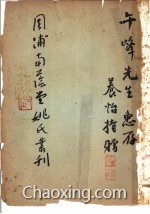 午峰先生惠存
養怡指贈
周浦南蔭堂姚氏叢刊
Chaoxing.com